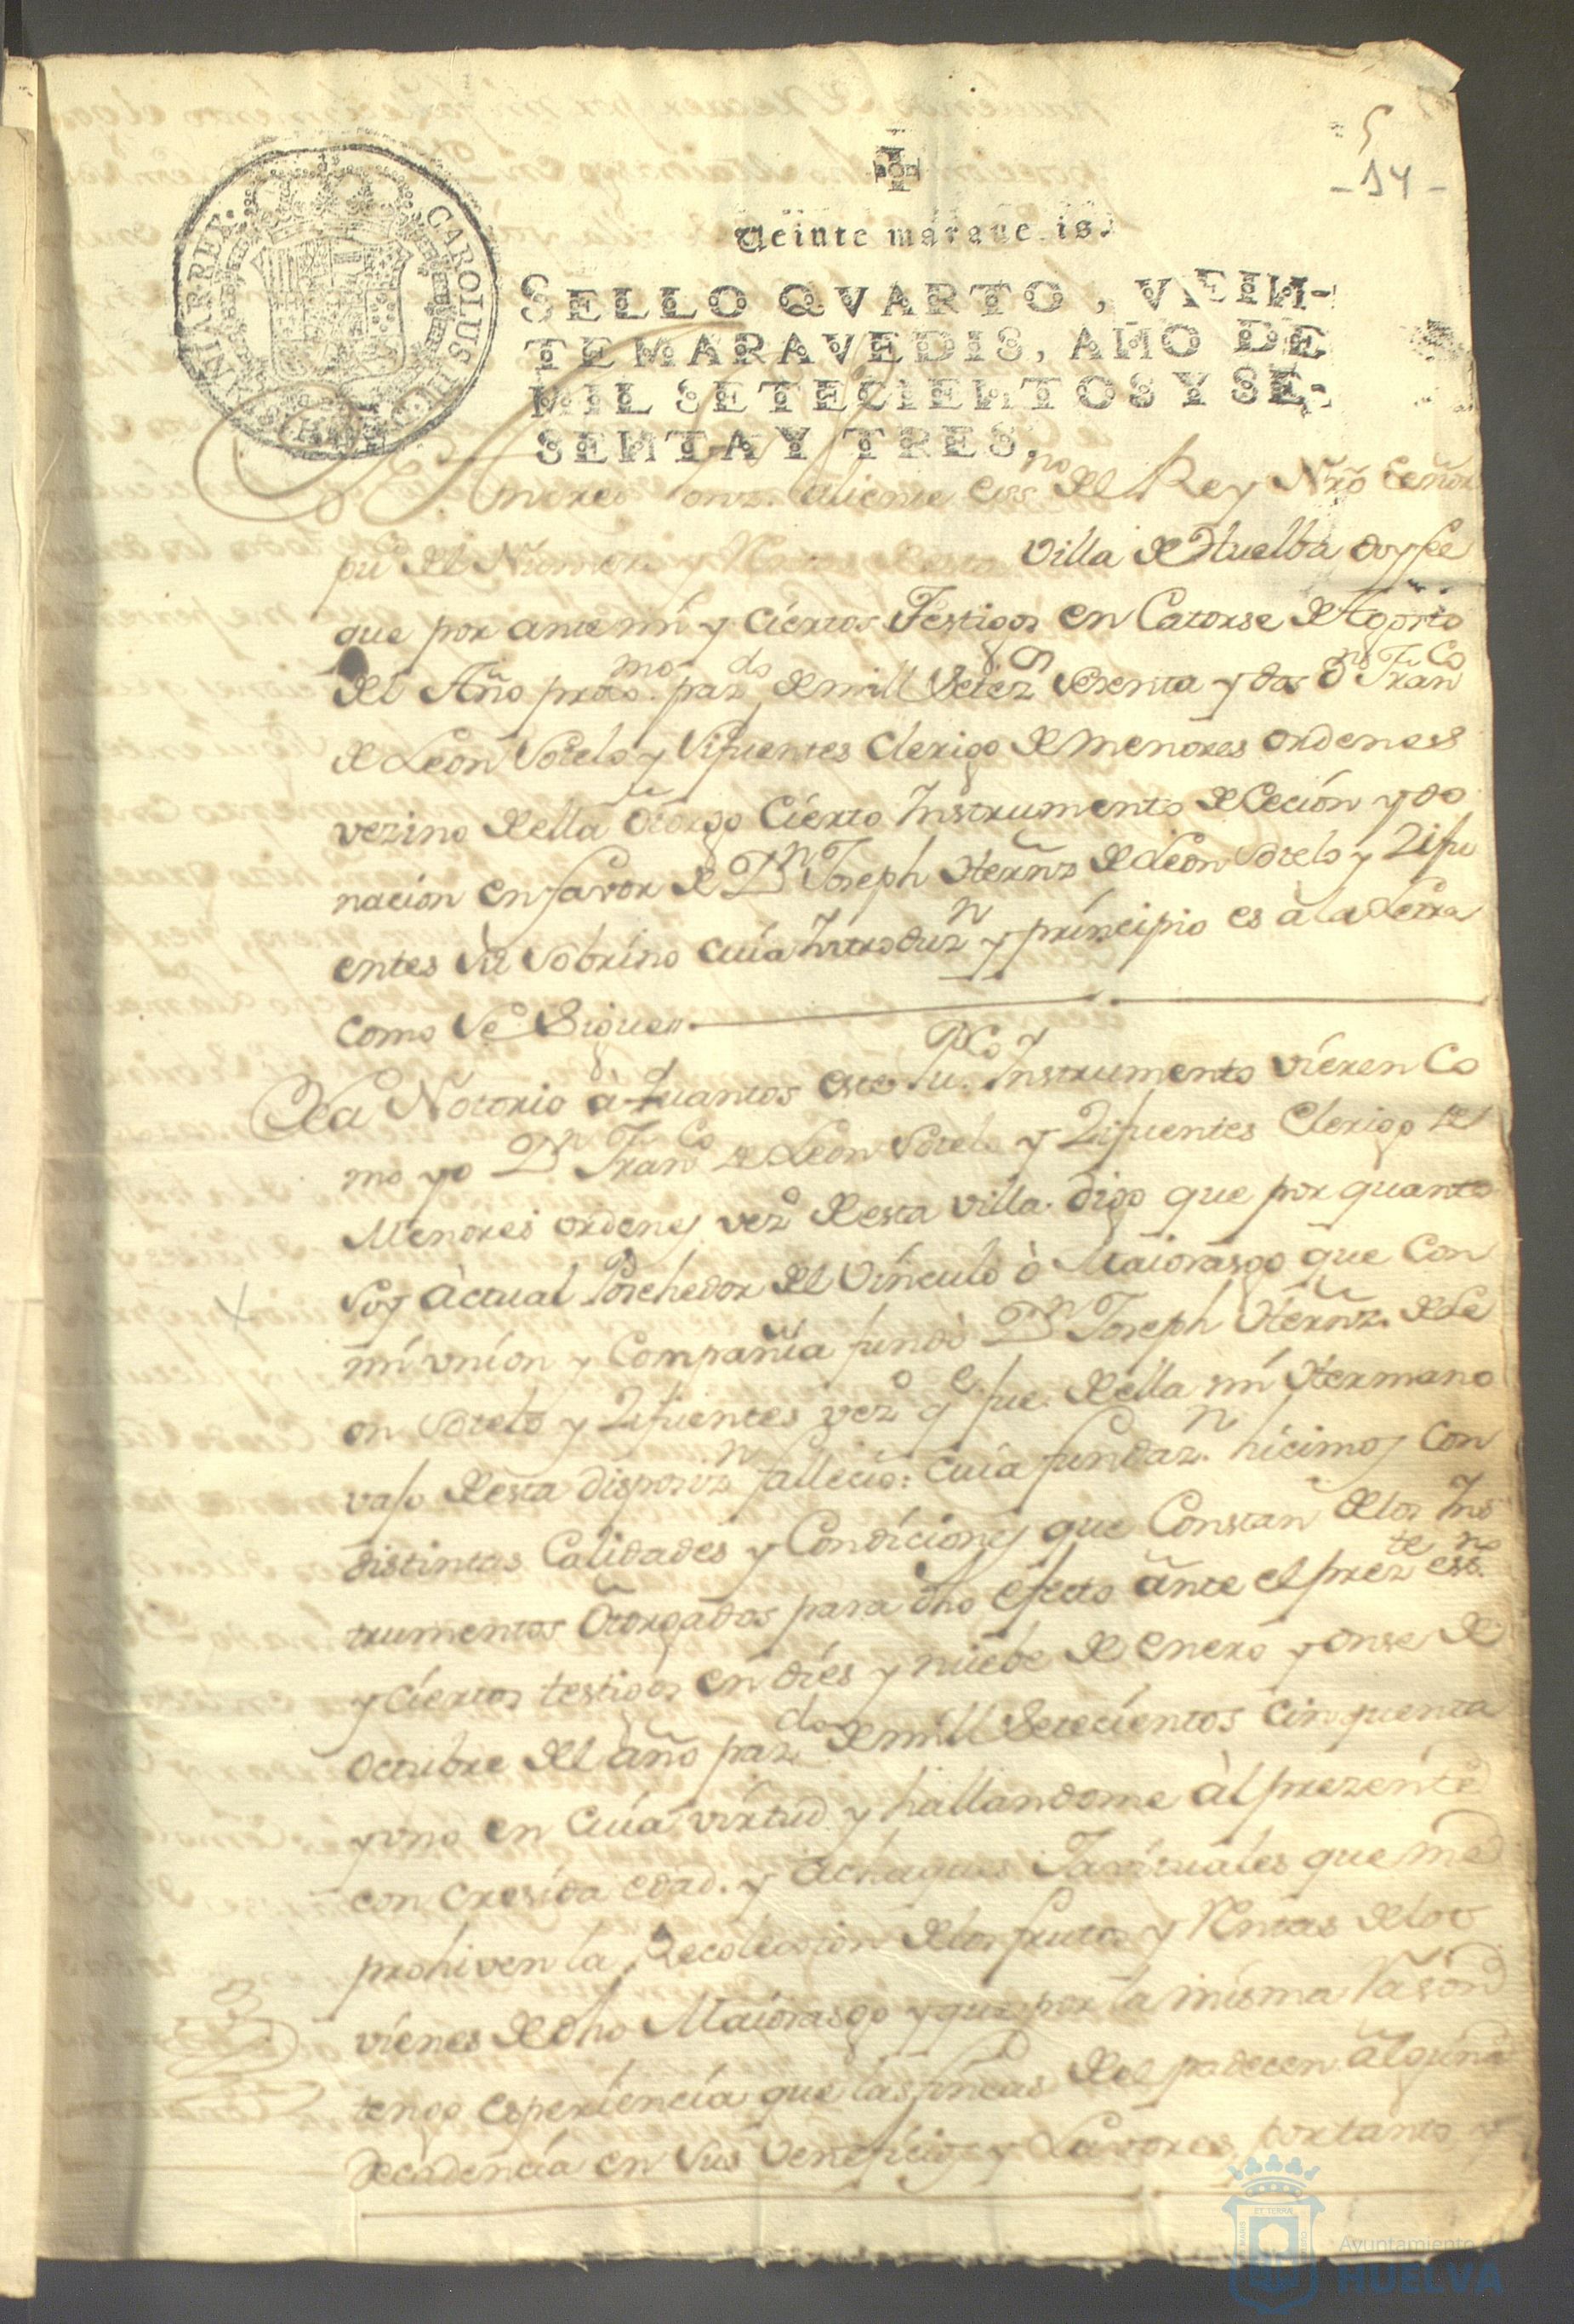 5
- 14 -
Veinte maravedis.
SELLO QVARTO, VEIN-
TE MARAVEDIS, AÑO DE
MIL SETECIENTOS Y SE-
SENTA Y TRES.
CAROLUS III D G HISPANIAR REX
Andres Gonz. Valiente essno del Rey Nro Señor
puco del Numero y Villa de Huelba doy fee
que por ante mi y ciertos Testigos en Catorse de Agosto
del Año proxmo pazdo de mill Setezs Sesenta y dos Dn Franco
de Leon Sotelo y Sifuentes Clerigo de menores ordenes
vezino de ella otorgo Cierto Instrumento de Cecion y do
nacion en favor de Dn Joseph Hernz de Leon Sotelo y Zifu
entes su Sobrino cuia Introduzn y principio es a la Letra
como se Sigue
Sea Notorio a quantos este puco Instrumento vieren Co
mo yo Dn Franco de Leon Sotelo y Zifuentes Clerigo de
Menores ordenes vezo de esta villa. digo que por quanto
soy actual Posehedor del Vinculo ò Maiorasgo que con
mi vnion y Compañia fundò Dn Joseph Hernz. de Le
on Sotelo y Zifuentes vezo qe fue de ella mi Hermano
vaso de esta disposizn fallecio: cuia fundazn. hicimos con
distintas Calidades y Condiciones que Constan de los Ins
trumentos Otorgados para dho efecto ante el prezte essno
y ciertos testigos en dies y nuebe de enero y onse de
octubre del año pazdo de mill Setecientos cinquenta
y uno en cuia virtud y hallandome àl prezente
con cresida edad. y achaques Javituales que me
prohiven la Recoleccion de los frutos y Rentas de los
vienes de dho Maiorasgo y que por la misma Rason
tengo experiencia que las fincas de el padecen alguna
decadencia en sus veneficios y Lavores, por tanto y
Ayuntamiento de
HUELVA